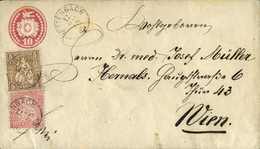 10
Hochgeboren
Herrn Dr. med. Josef Müller
Hernals, Hauptstrasse 6
Thür 43
Wien.